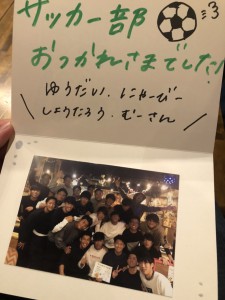 サッカー部
おつかれさまでした!
ゆうだい、にゃーびー
しょうたろう、むーさん